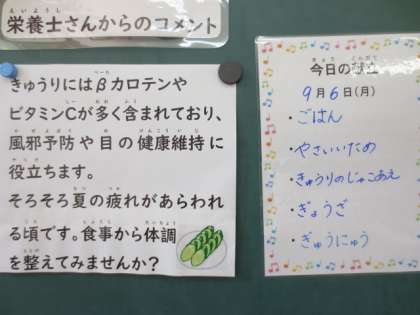 栄養士さんからのコメント
きゅうりにはβカロテンや
ビタミンCが多く含まれており、
風邪予防や目の健康維持に
役立ちます。
そろそろ夏の疲れがあらわれ
る頃です。食事から体調
を整えてみませんか?
今日の献立
9月6日(月)
・ごはん
・やさいいため
・きゅうりのじゃこあえ
・ぎょうざ
・ぎゅうにゅう